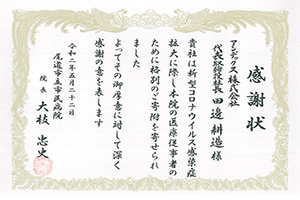 感謝状
アンデックス株式会社
代表取締役社長 田邊耕造 様
貴社は新型コロナウイルス感染症
拡大に際し本院の医療従事者の
ために格別のご寄附を寄せられ
ました
よってその御厚意に対して深く
感謝の意を表します
令和二年五月二十二日
尾道市立市民病院
院長 大枝忠史